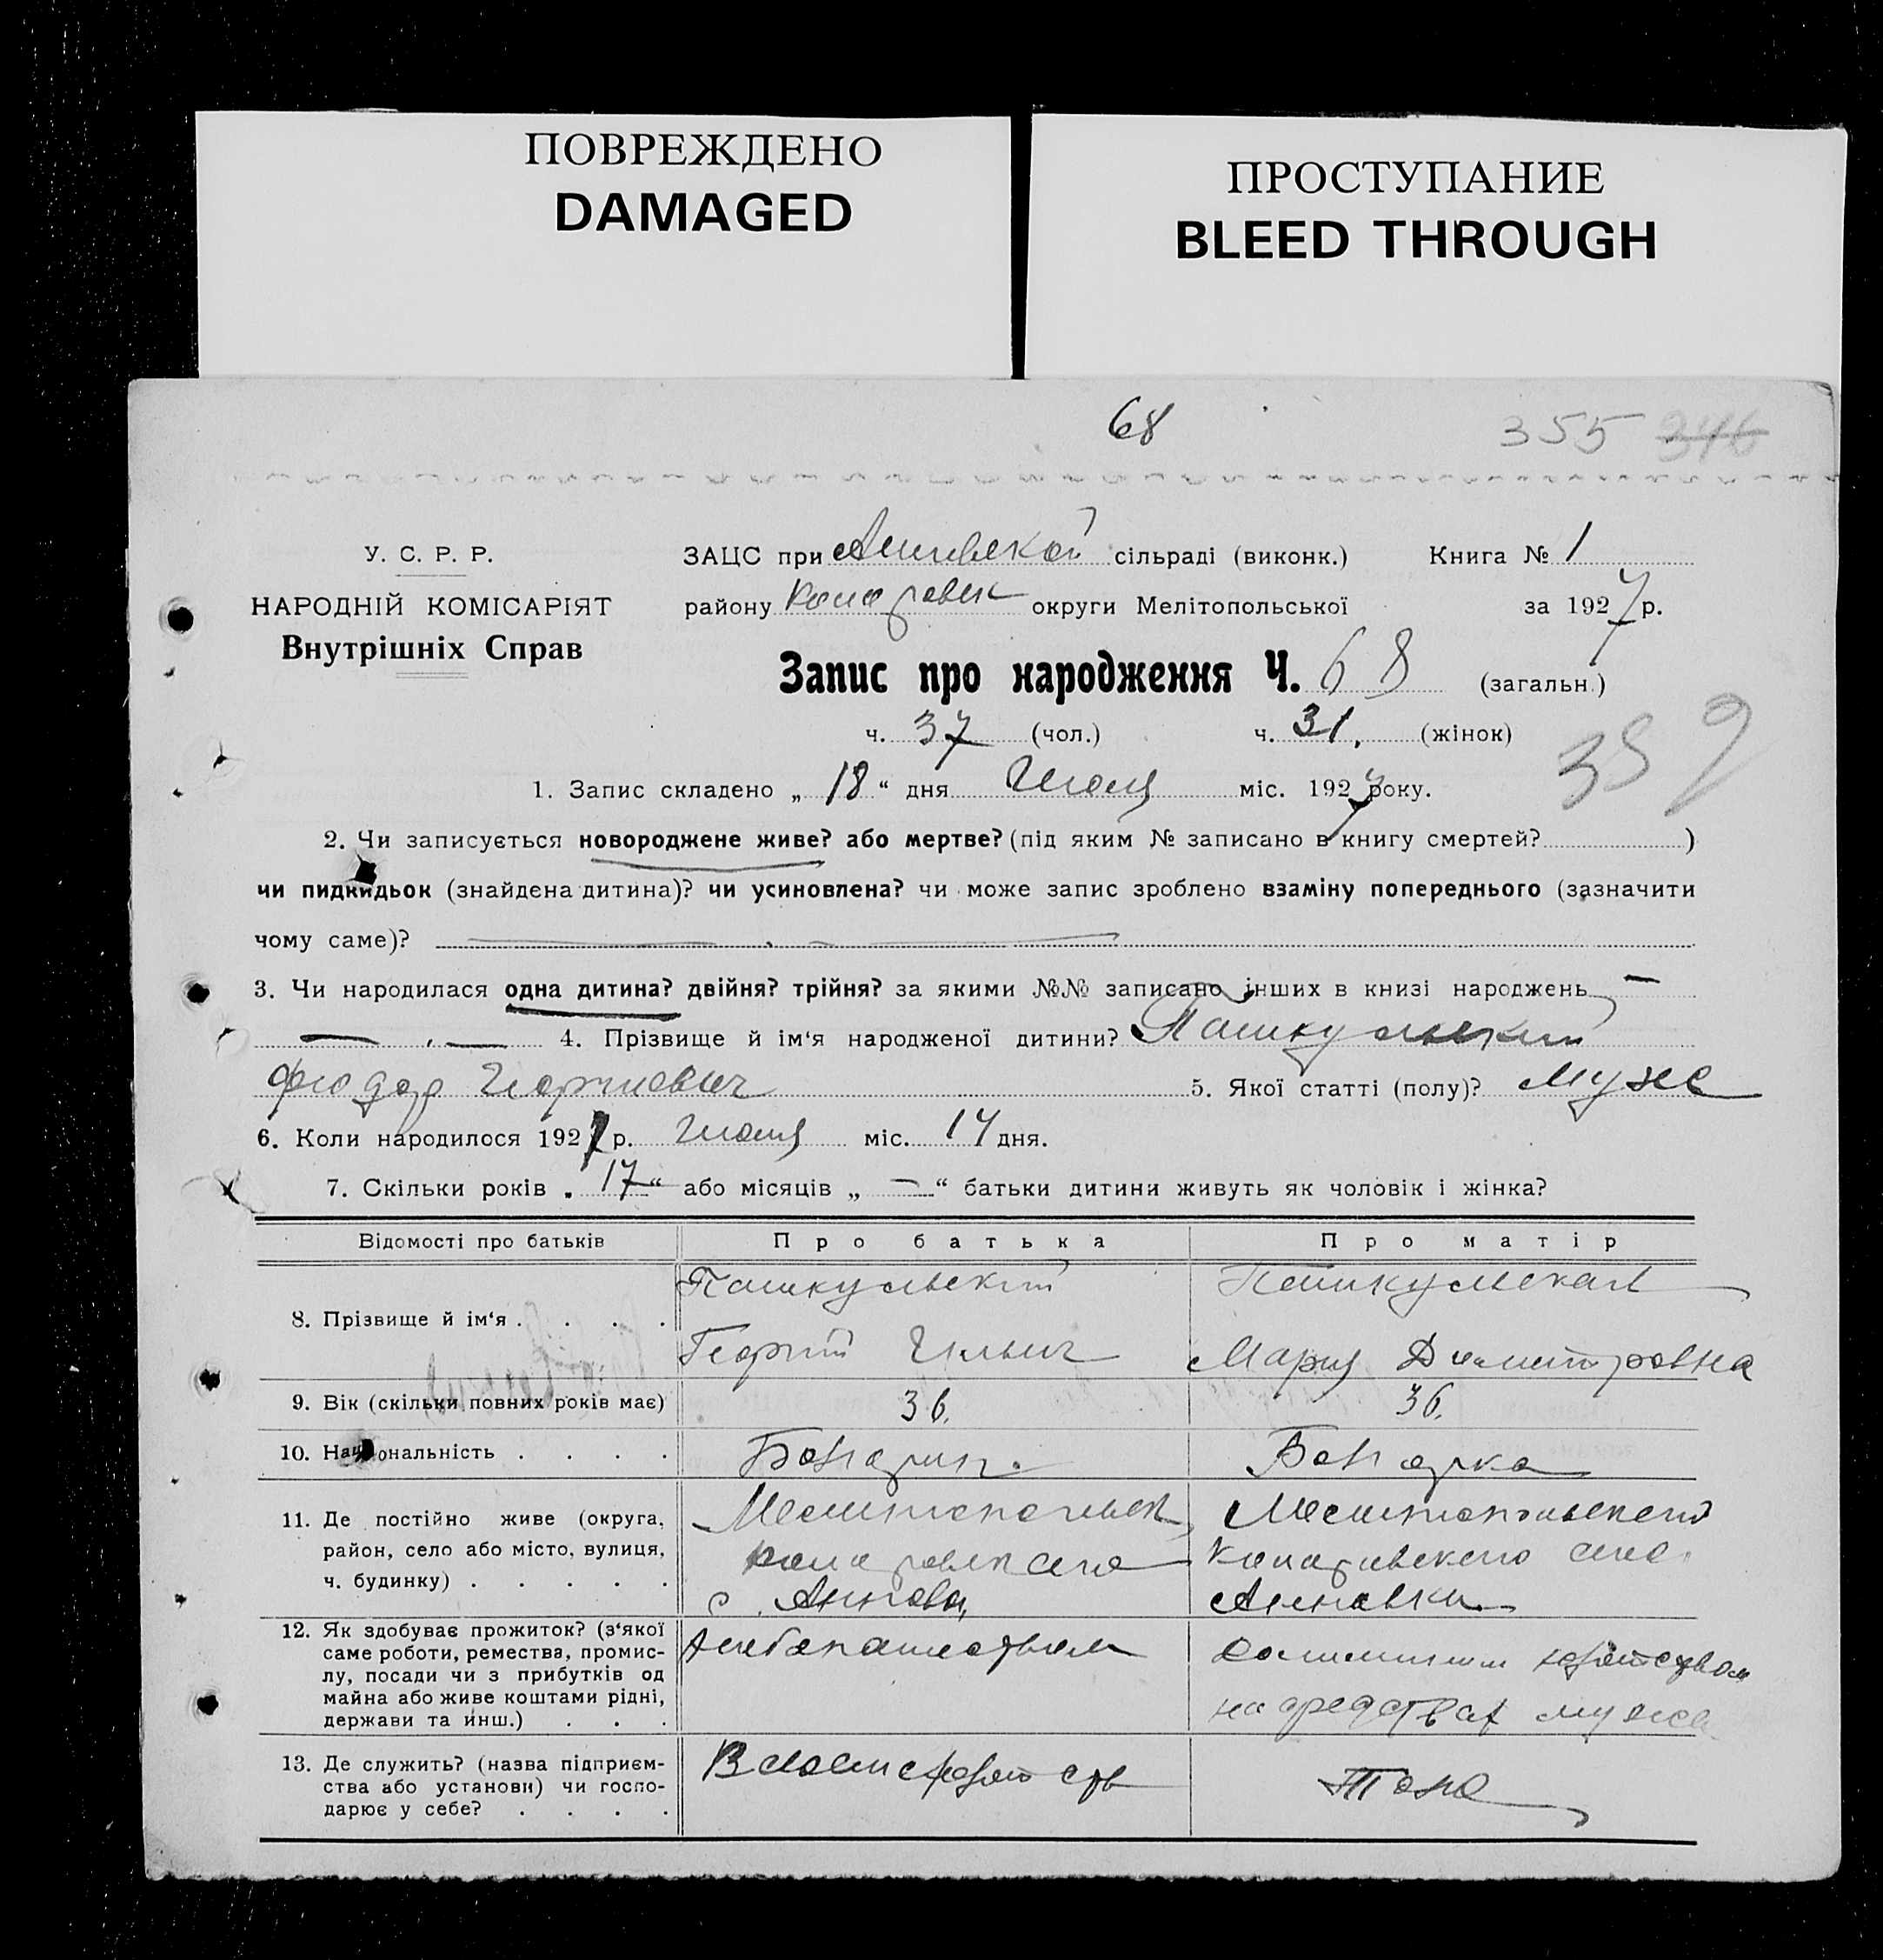 ПОВРЕЖДЕНО
DAMAGED
ПРОСТУПАНИЕ
BLEED THROUGH
68
355 346
У. С. Р. Р.
НАРОДНІЙ КОМІСАРІЯТ
Внутрішніх Справ
ЗАЦС при сільраді (виконк.) Книга № 1
району округи Мелітопольської за 1927 р.
Запис про народження Ч. 68 (загальн.)
ч. 37 (чол.) ч. 31. (жінок)
359
1. Запис складено „ 18 “ дня Июля міс. 1927 року.
2. Чи записується новороджене живе? або мертве? (під яким № записано в книгу смертей? )
чи пидкидьок (знайдена дитина)? чи усиновлена? чи може запис зроблено взаміну попереднього (зазначити
чому саме)?
3. Чи народилася одна дитина? двійня? трійня? за якими №№ записано інших в книзі народжень —
— . — 4. Прізвище й ім‘я народженої дитини? Пашкульский
Фиодор Георгиевич 5. Якої статті (полу)? Муже
6. Коли народилося 1927 р. Июля міс. 14 дня.
7. Скільки років „ 17 “ або місяців „ — “ батьки дитини живуть як чоловік і жінка?
Відомості про батьків Про батька Про матір
8. Прізвище й ім‘я . . . . Пашкульский Пашкульская
Георгий Ильич Мария Димитровна
9. Вік (скільки повних років має) 36. 36.
10. Національність . . . . Болгарин. Болгарка
11. Де постійно живе (округа,
район, село або місто, вулиця,
ч. будинку) . . . . .
Мелитопольск
с. Анновка
Мелитопольского
Анновки
12. Як здобуває прожиток? (з‘якої
саме роботи, ремества, промис-
лу, посади чи з прибутків од
майна або живе коштами рідні,
держави та инш.) . . .
Хлебопашеством
на средствах мужа
13. Де служить? (назва підприєм-
ства або установи) чи госпо-
дарює у себе? . . . .
В
Тоже